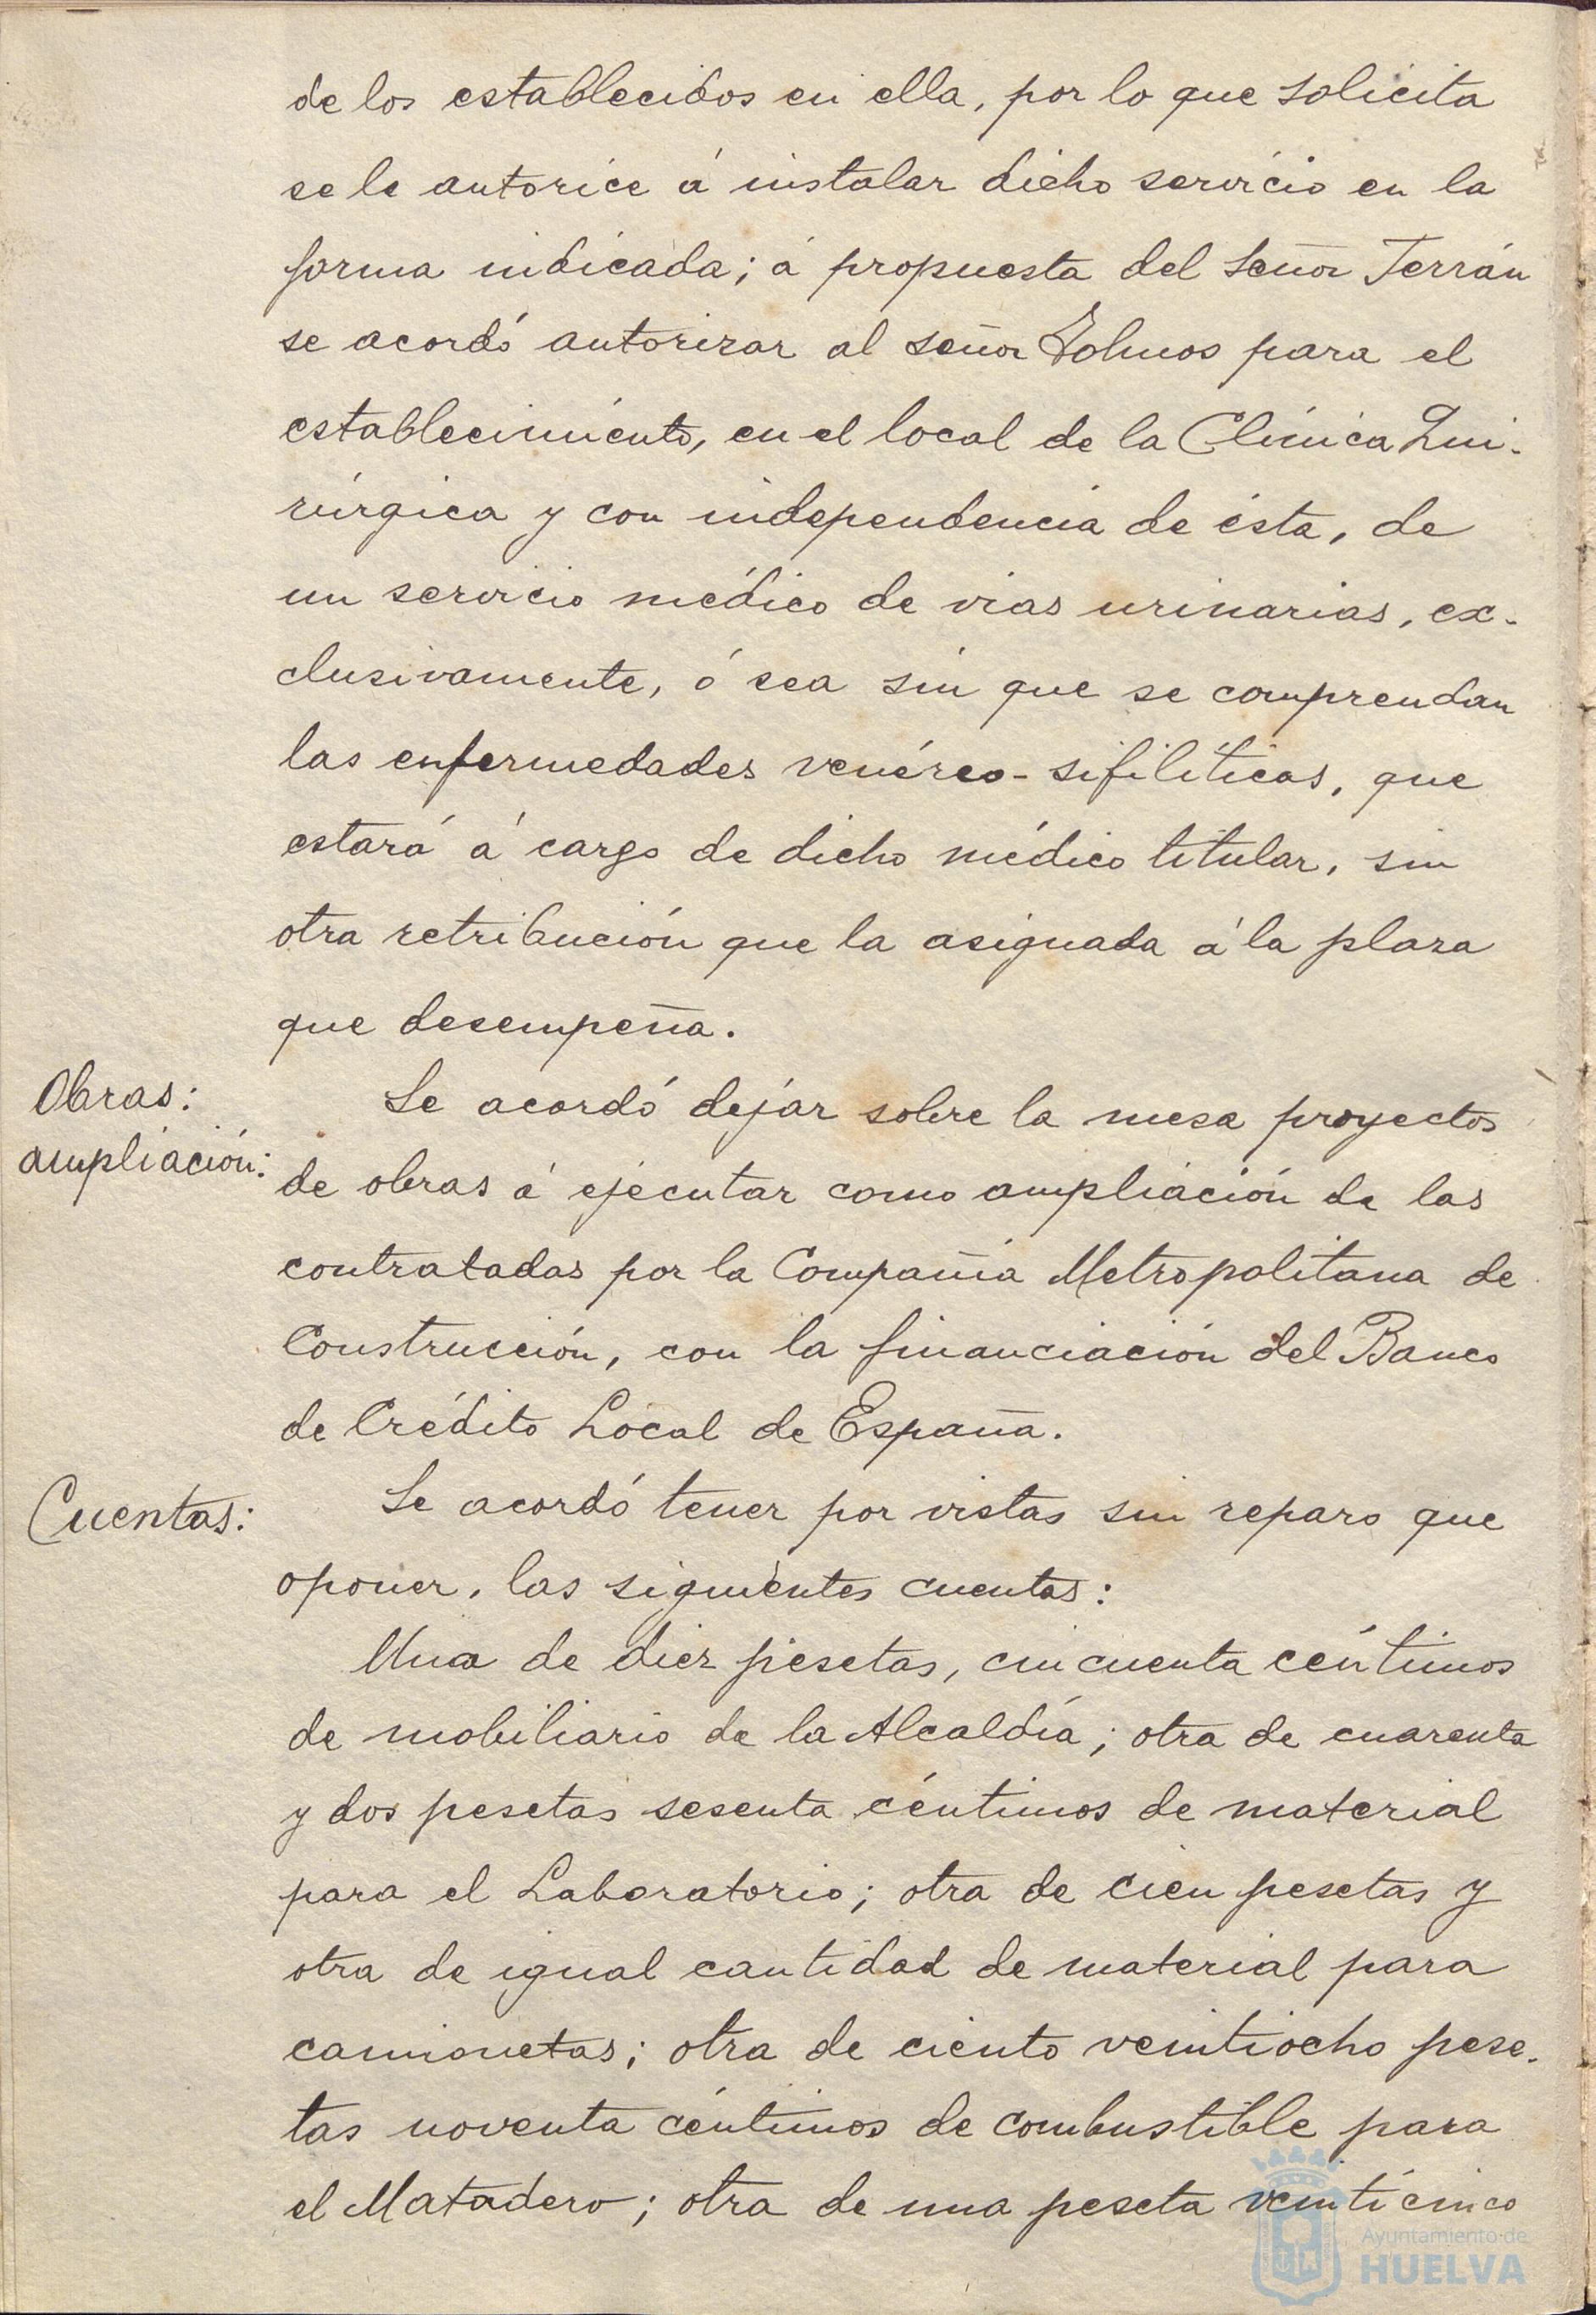 de los establecidos en ella, por lo que solicita
se le autorice á instalar dicho servicio en la
forma indicada; á propuesta del Señor Terrán
se acordó autorizar al señor para el
establecimiento, en el local de la Clínica Qui-
rúrgica y con independencia de ésta, de
un servicio médico de vias urinarias, ex-
clusivamente, ó sea sin que se comprendan
las enfermedades venéreo-sifilíticas, que
estará á cargo de dicho médico titular, sin
otra retribución que la asignada á la plaza
que desempeña.
Obras:
ampliación:
Se acordó dejar sobre la mesa proyectos
de obras á ejecutar como ampliación de las
contratadas por la Compañia Metropolitana de
Construcción, con la financiación del Banco
de Crédito Local de España.
Cuentas:
Se acordó tener por vistas sin reparo que
oponer, las siguientes cuentas:
Una de diez pesetas, cincuenta céntimos
de mobiliario de la Alcaldía; otra de cuarenta
y dos pesetas sesenta céntimos de material
para el Laboratorio; otra de cien pesetas y
otra de igual cantidad de material para
camionetas; otra de ciento veintiocho pese-
tas noventa céntimos de combustible para
el Matadero; otra de una peseta veinticinco
Ayuntamiento de
HUELVA